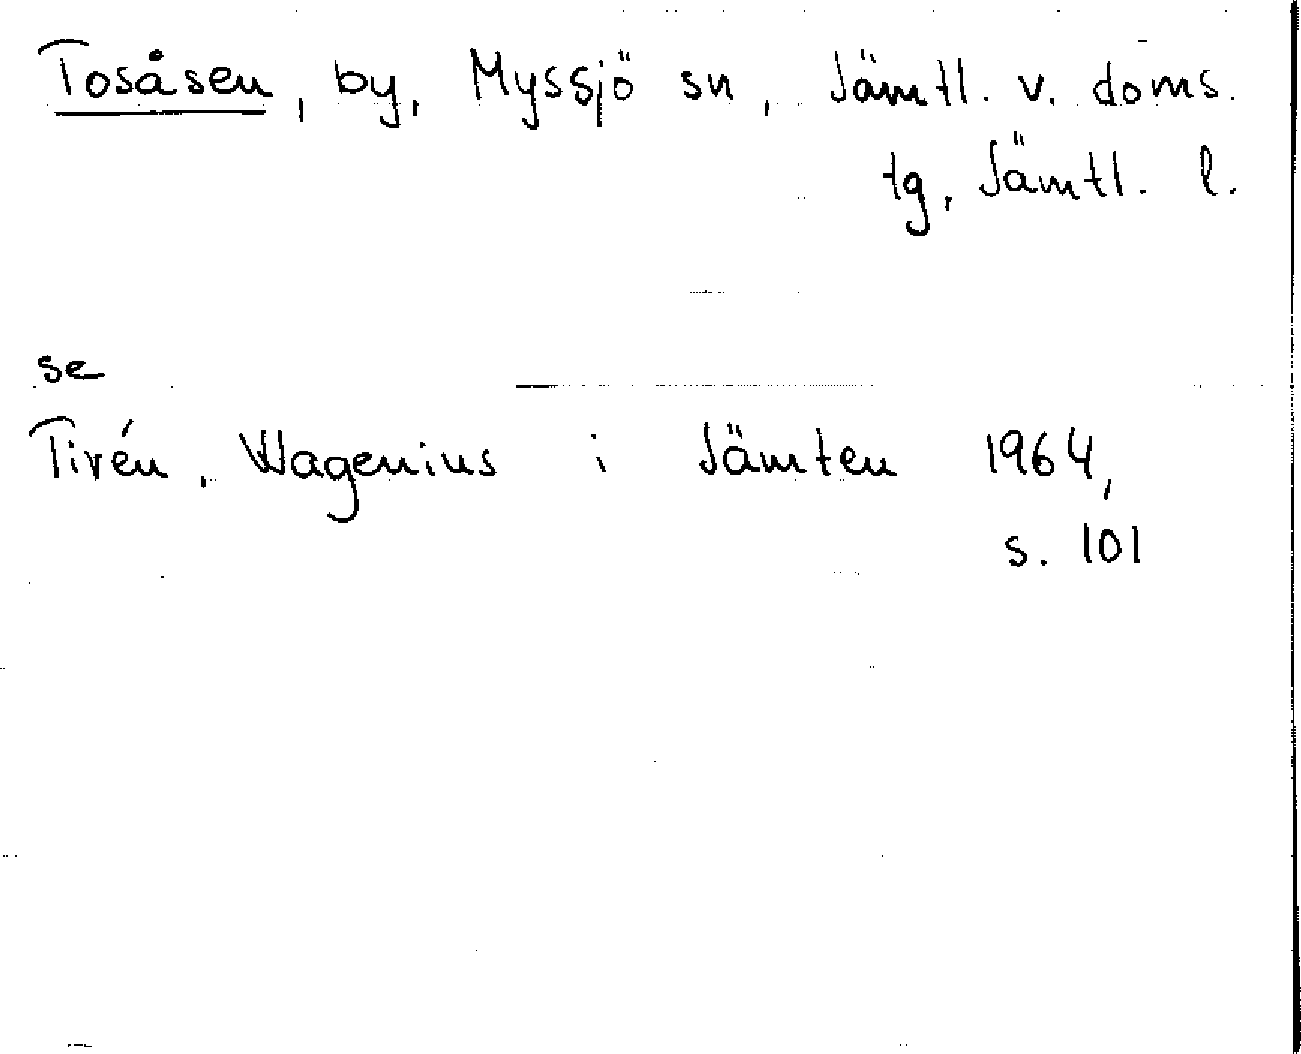 Tosåsen, by, Myssjö sn, Jämtl. v. doms.
tg, Jämtl. l.
se
Tirén, Wagenius i Jämten 1964,
s. 101